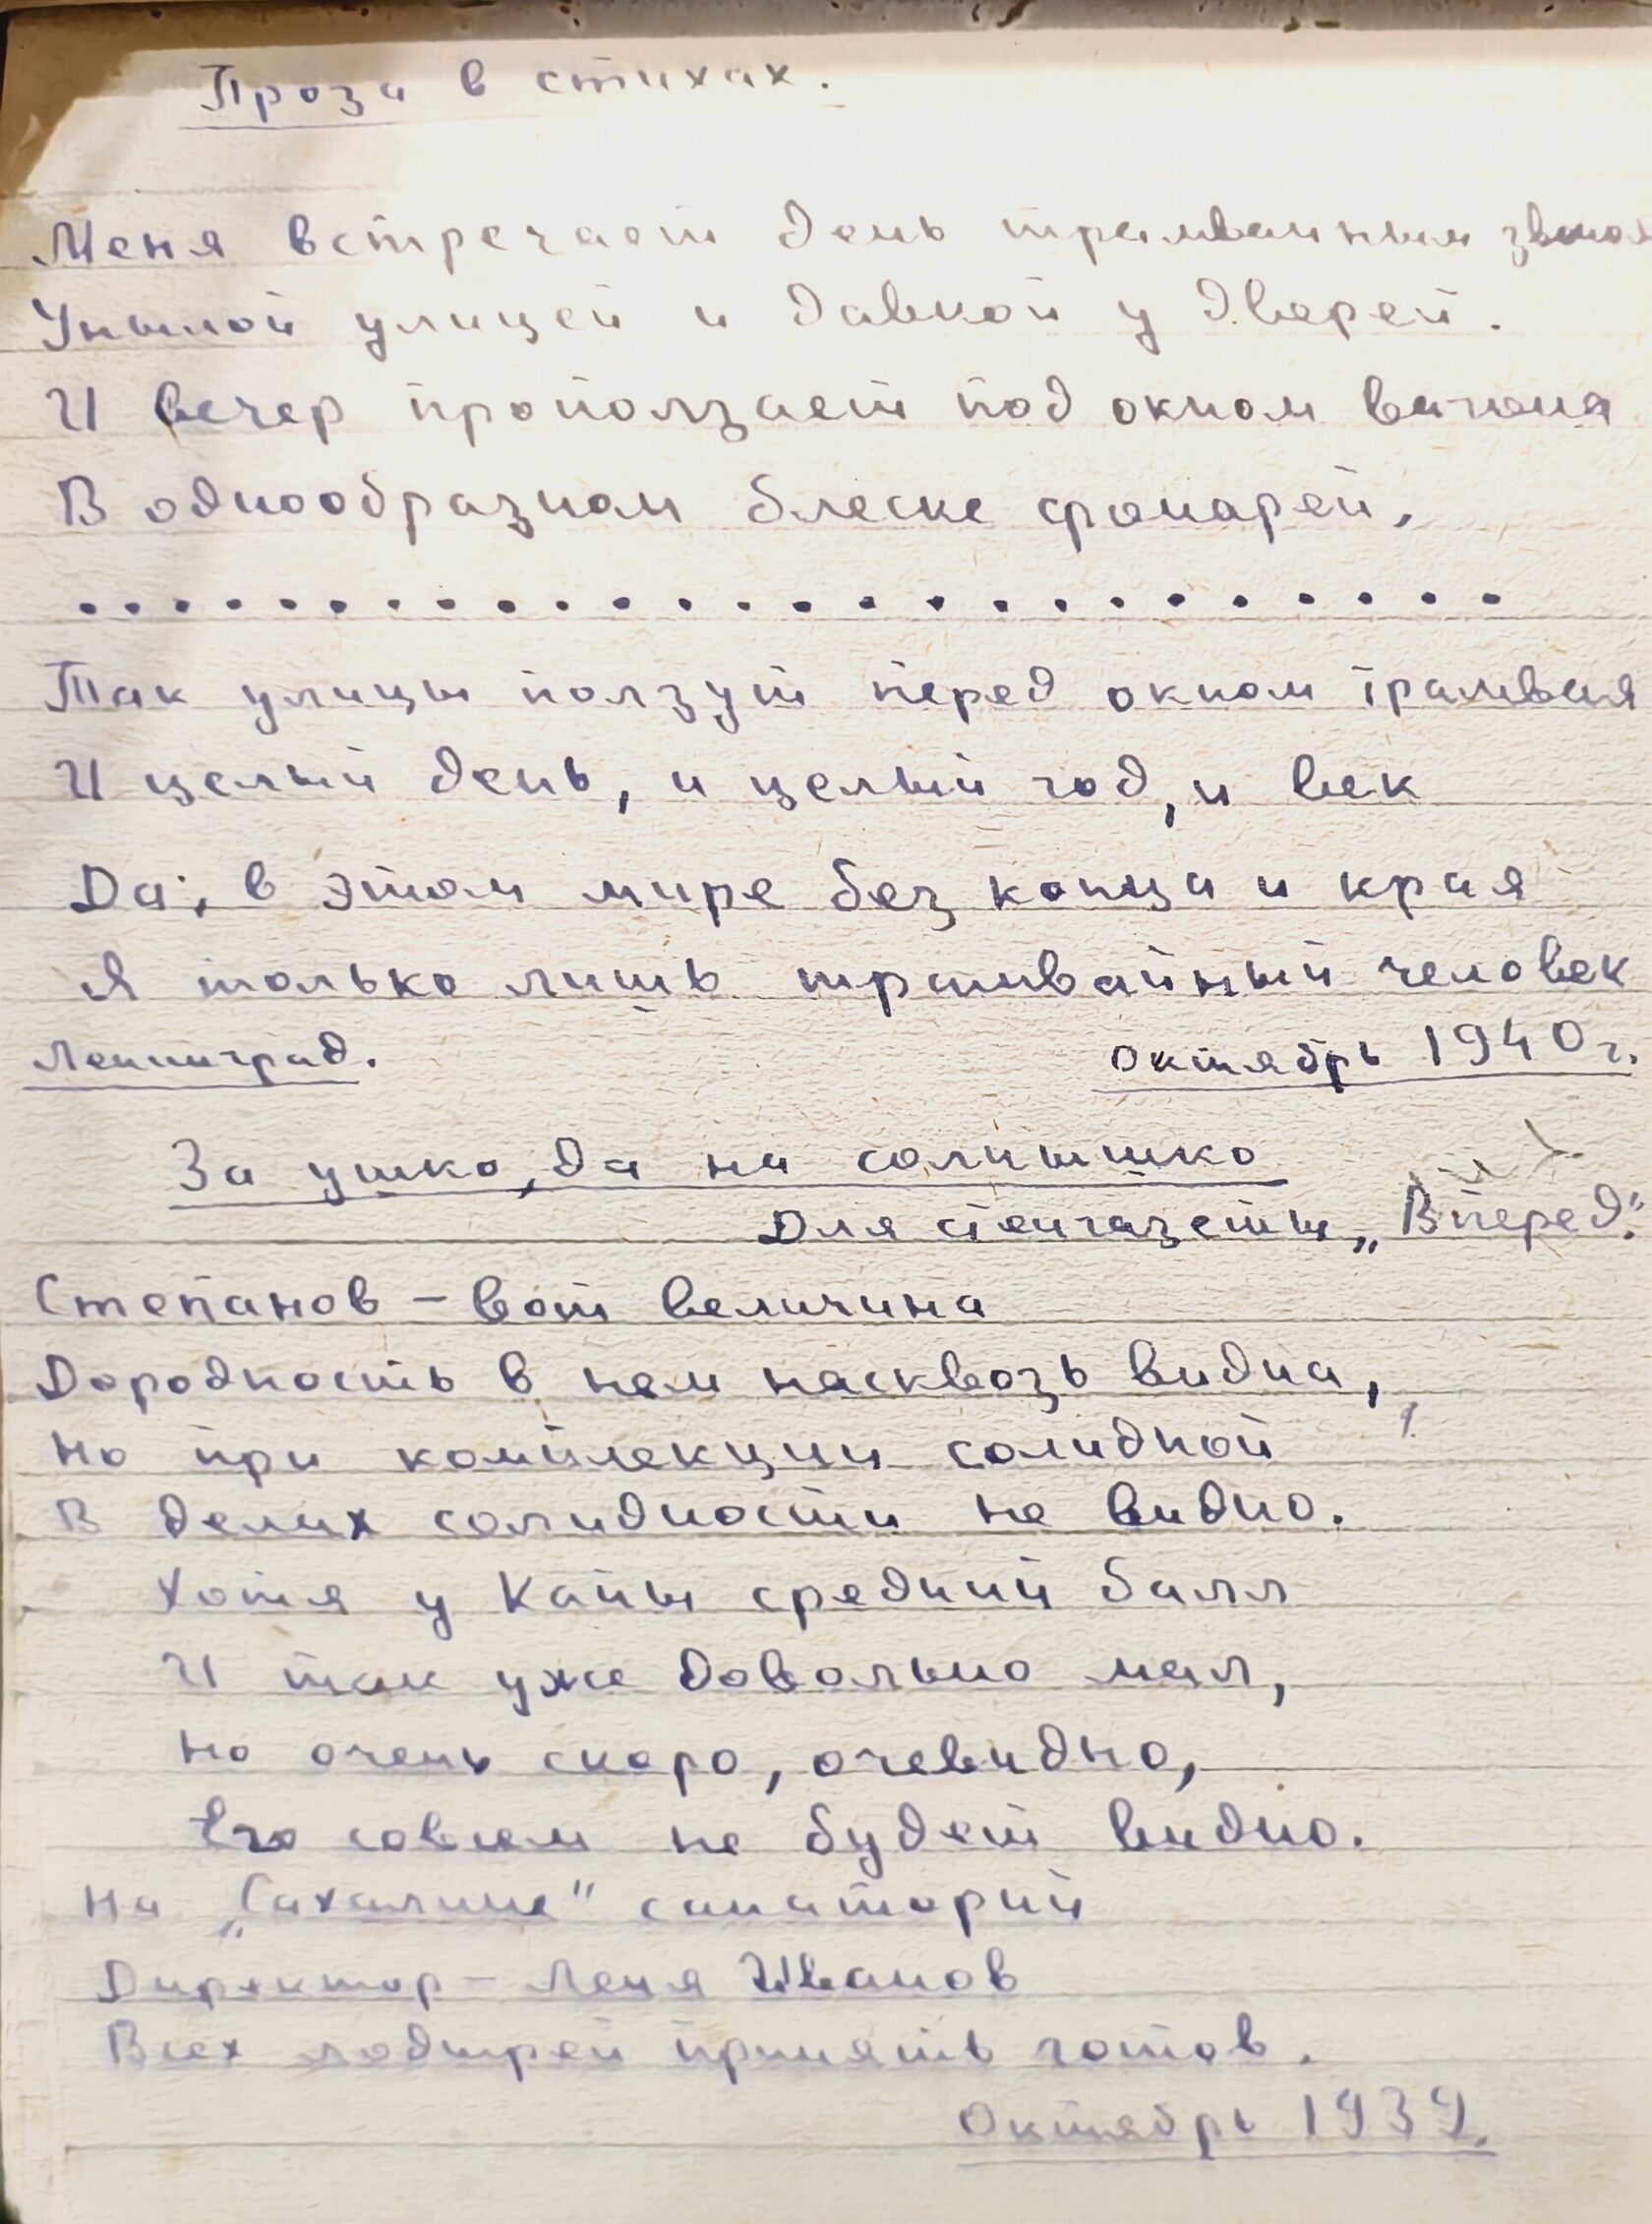 Проза в стихах.
Меня встречает день трамвайным звоном
Унылой улицей и давкой у дверей.
И вечер проползает под окном вагона
В однообразном блеске фонарей.
. . . . . . . . . . . . . . . . . . . . . . . .
Так улицы ползут перед окном трамвая
И целый день, и целый год, и век
Да, в этом мире без конца и края
Я только лишь трамвайный человек
Ленинград. октябрь 1940 г.
За ушко, да на солнышко
Для стенгазеты „Вперед".
Степанов – вот величина
Дородность в нем насквозь видна,
Но при комплекции солидной
В делах солидности не видно.
Хотя у Капы средний балл
И так уже довольно мал,
Но очень скоро, очевидно,
Его совсем не будет видно.
На „Сахалине" санаторий
Директор – Леня Иванов
Всех лодырей принять готов.
Октябрь 1939.